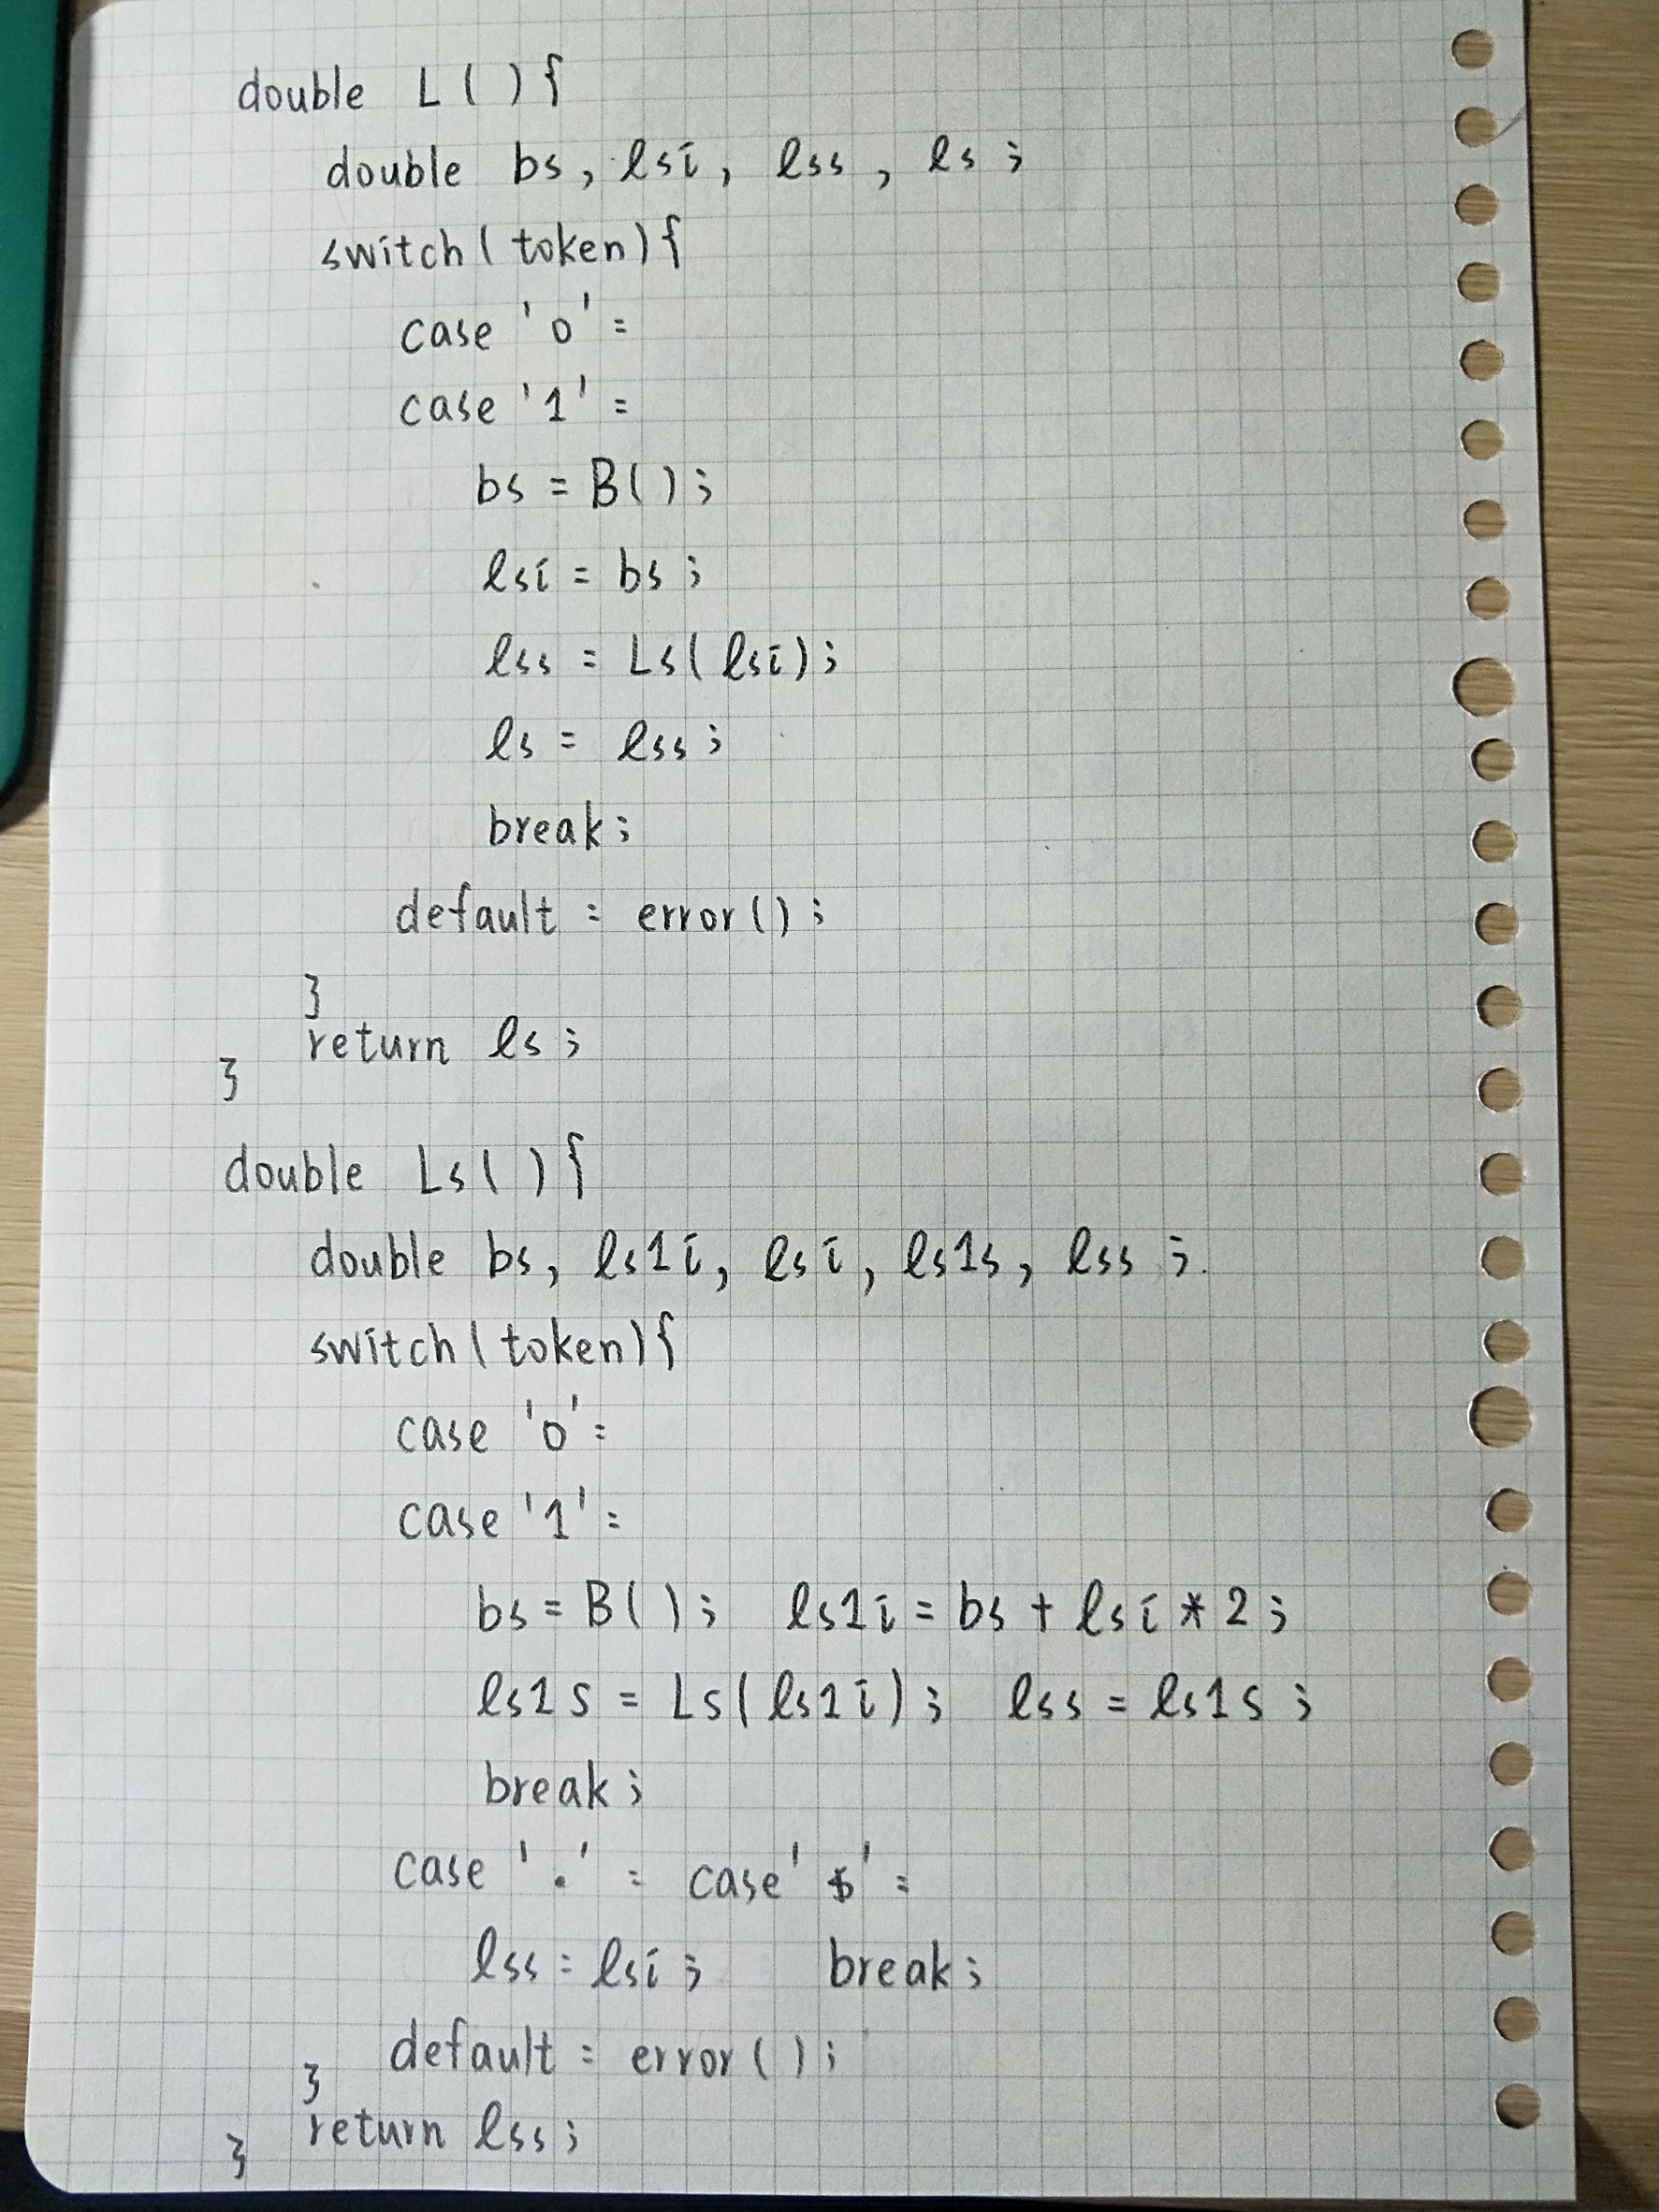 double L(){
double bs, lsi, lss, ls;
switch(token){
case '0':
case '1':
bs = B();
lsi = bs;
lss = Ls(lsi);
ls = lss;
break;
default: error();
}
return ls;
}
double Ls(){
double bs, ls1i, lsi, ls1s, lss;
switch(token){
case '0':
case '1':
bs = B(); ls1i = bs + lsi * 2;
ls1s = Ls(ls1i); lss = ls1s;
break;
case '.': case '$':
lss = lsi; break;
default: error();
}
return lss;
}